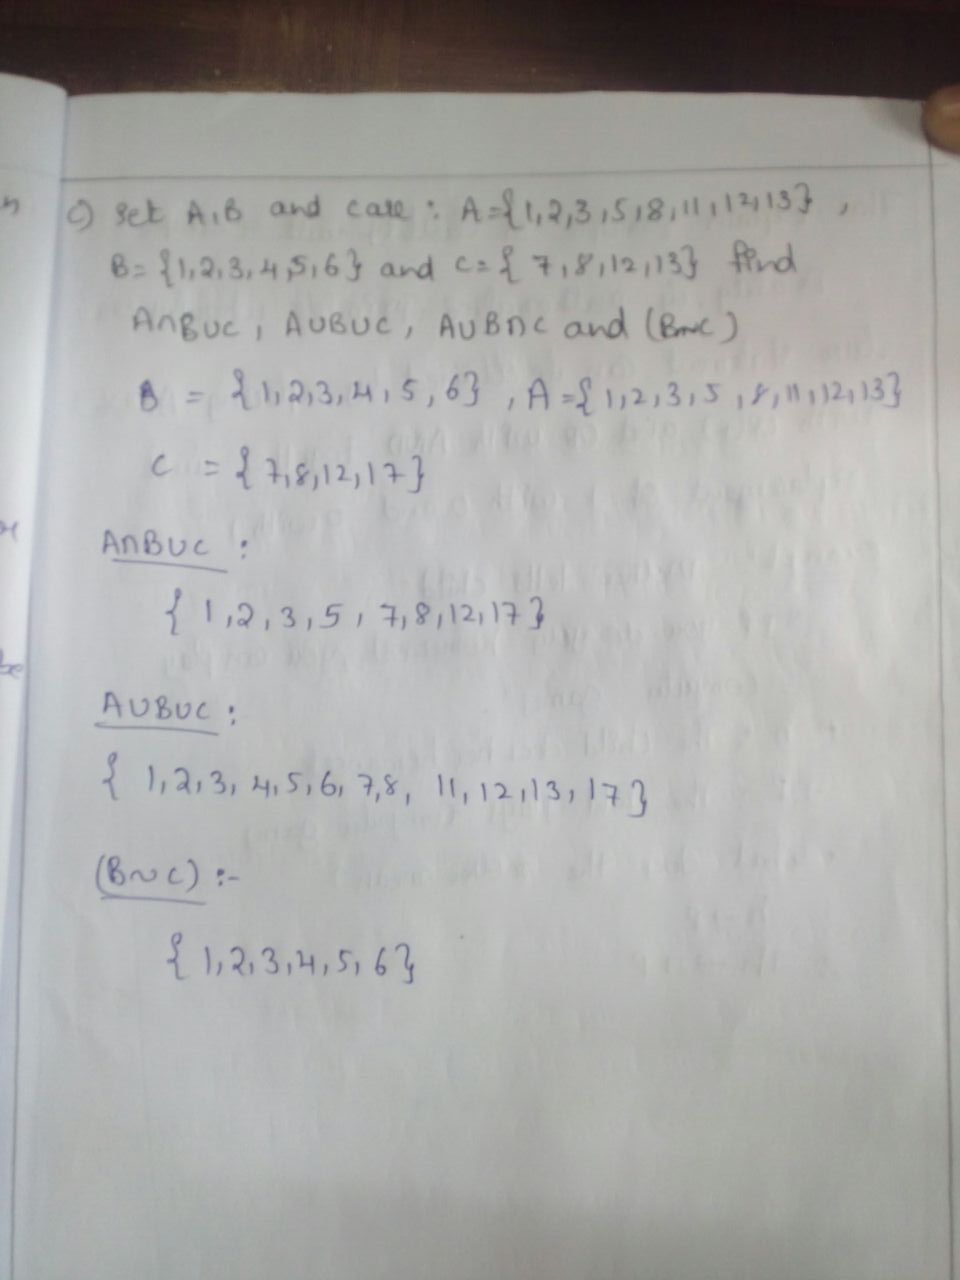 c) Set A,B and care : A={1,2,3,5,8,11,12,13},
B={1,2,3,4,5,6} and C={ 7,8,12,13} find
A∩BUC, AUBUC, AUB∩C and (B~C)
B = {1,2,3,4,5,6}, A={1,2,3,5,8,11,12,13}
C = {7,8,12,17}
A∩BUC :
{ 1,2,3,5, 7,8,12,17}
AUBUC :
{ 1,2,3,4,5,6,7,8, 11,12,13,17}
(B~C) :-
{ 1,2,3,4,5,6}